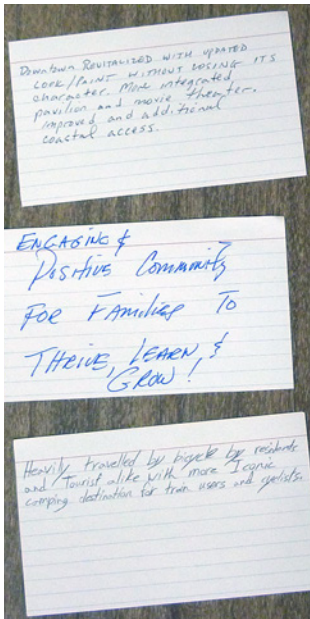 Downtown Revitalized with updated
look/paint without losing its
character. More integrated
pavilion and movie theater.
improved and additional
coastal access.
ENGAGING &
Positive Community
FOR FAMILIES TO
THRIVE, LEARN, &
GROW!
Heavily travelled by bicycle by residents
and Tourist alike with more Iconic
camping destination for train users and cyclists.